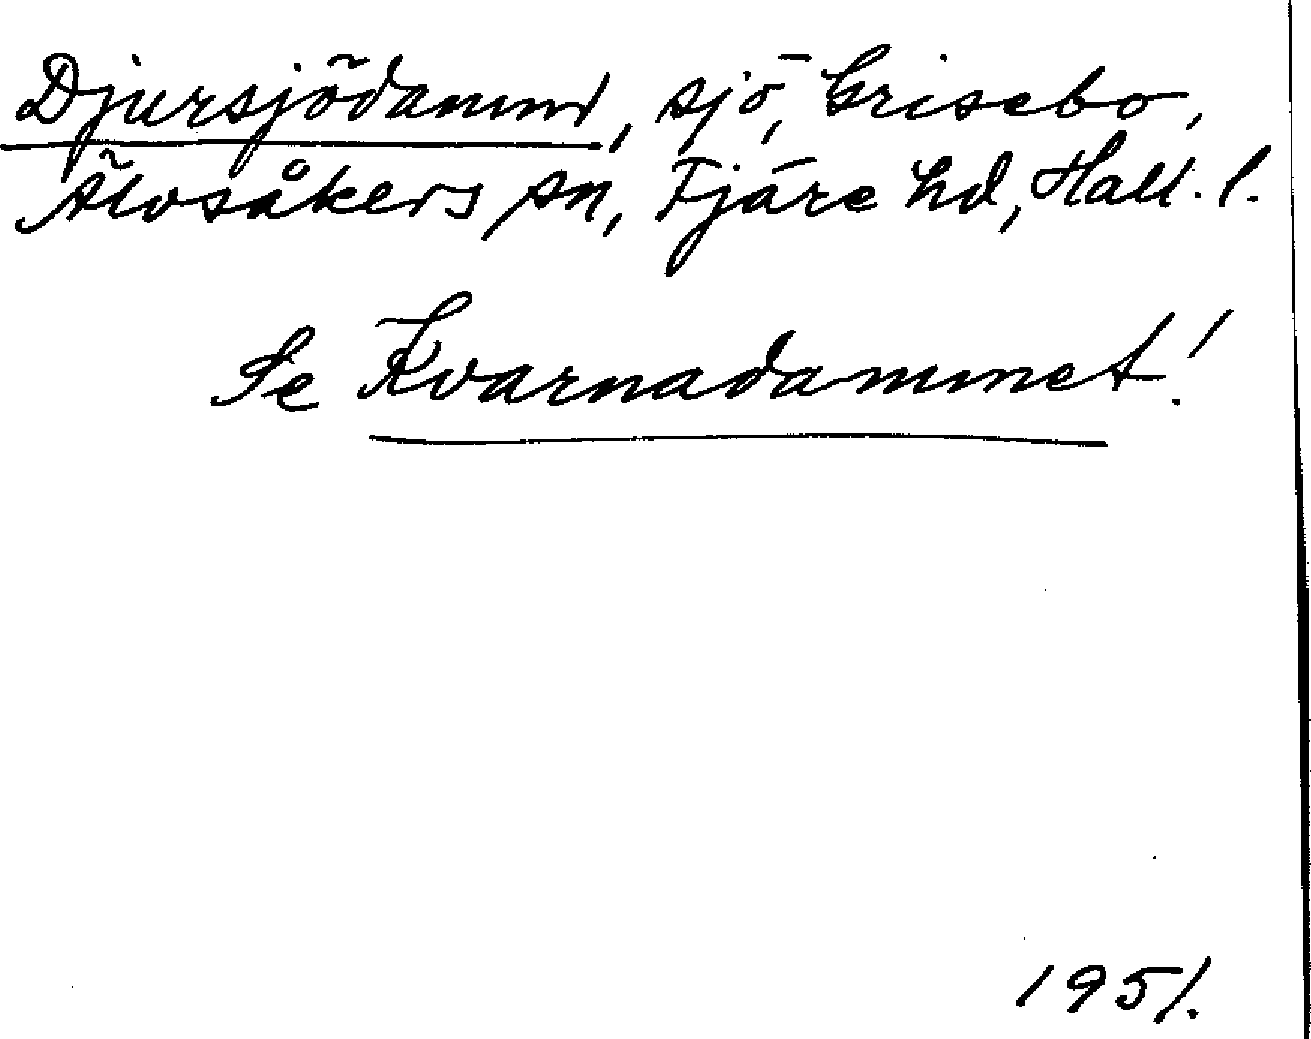 Djursjödamm, sjö, Grisebo,
Älvsåkers sn, Fjäre hd, Hall. l.
Se Kvarnadammet!
1951.